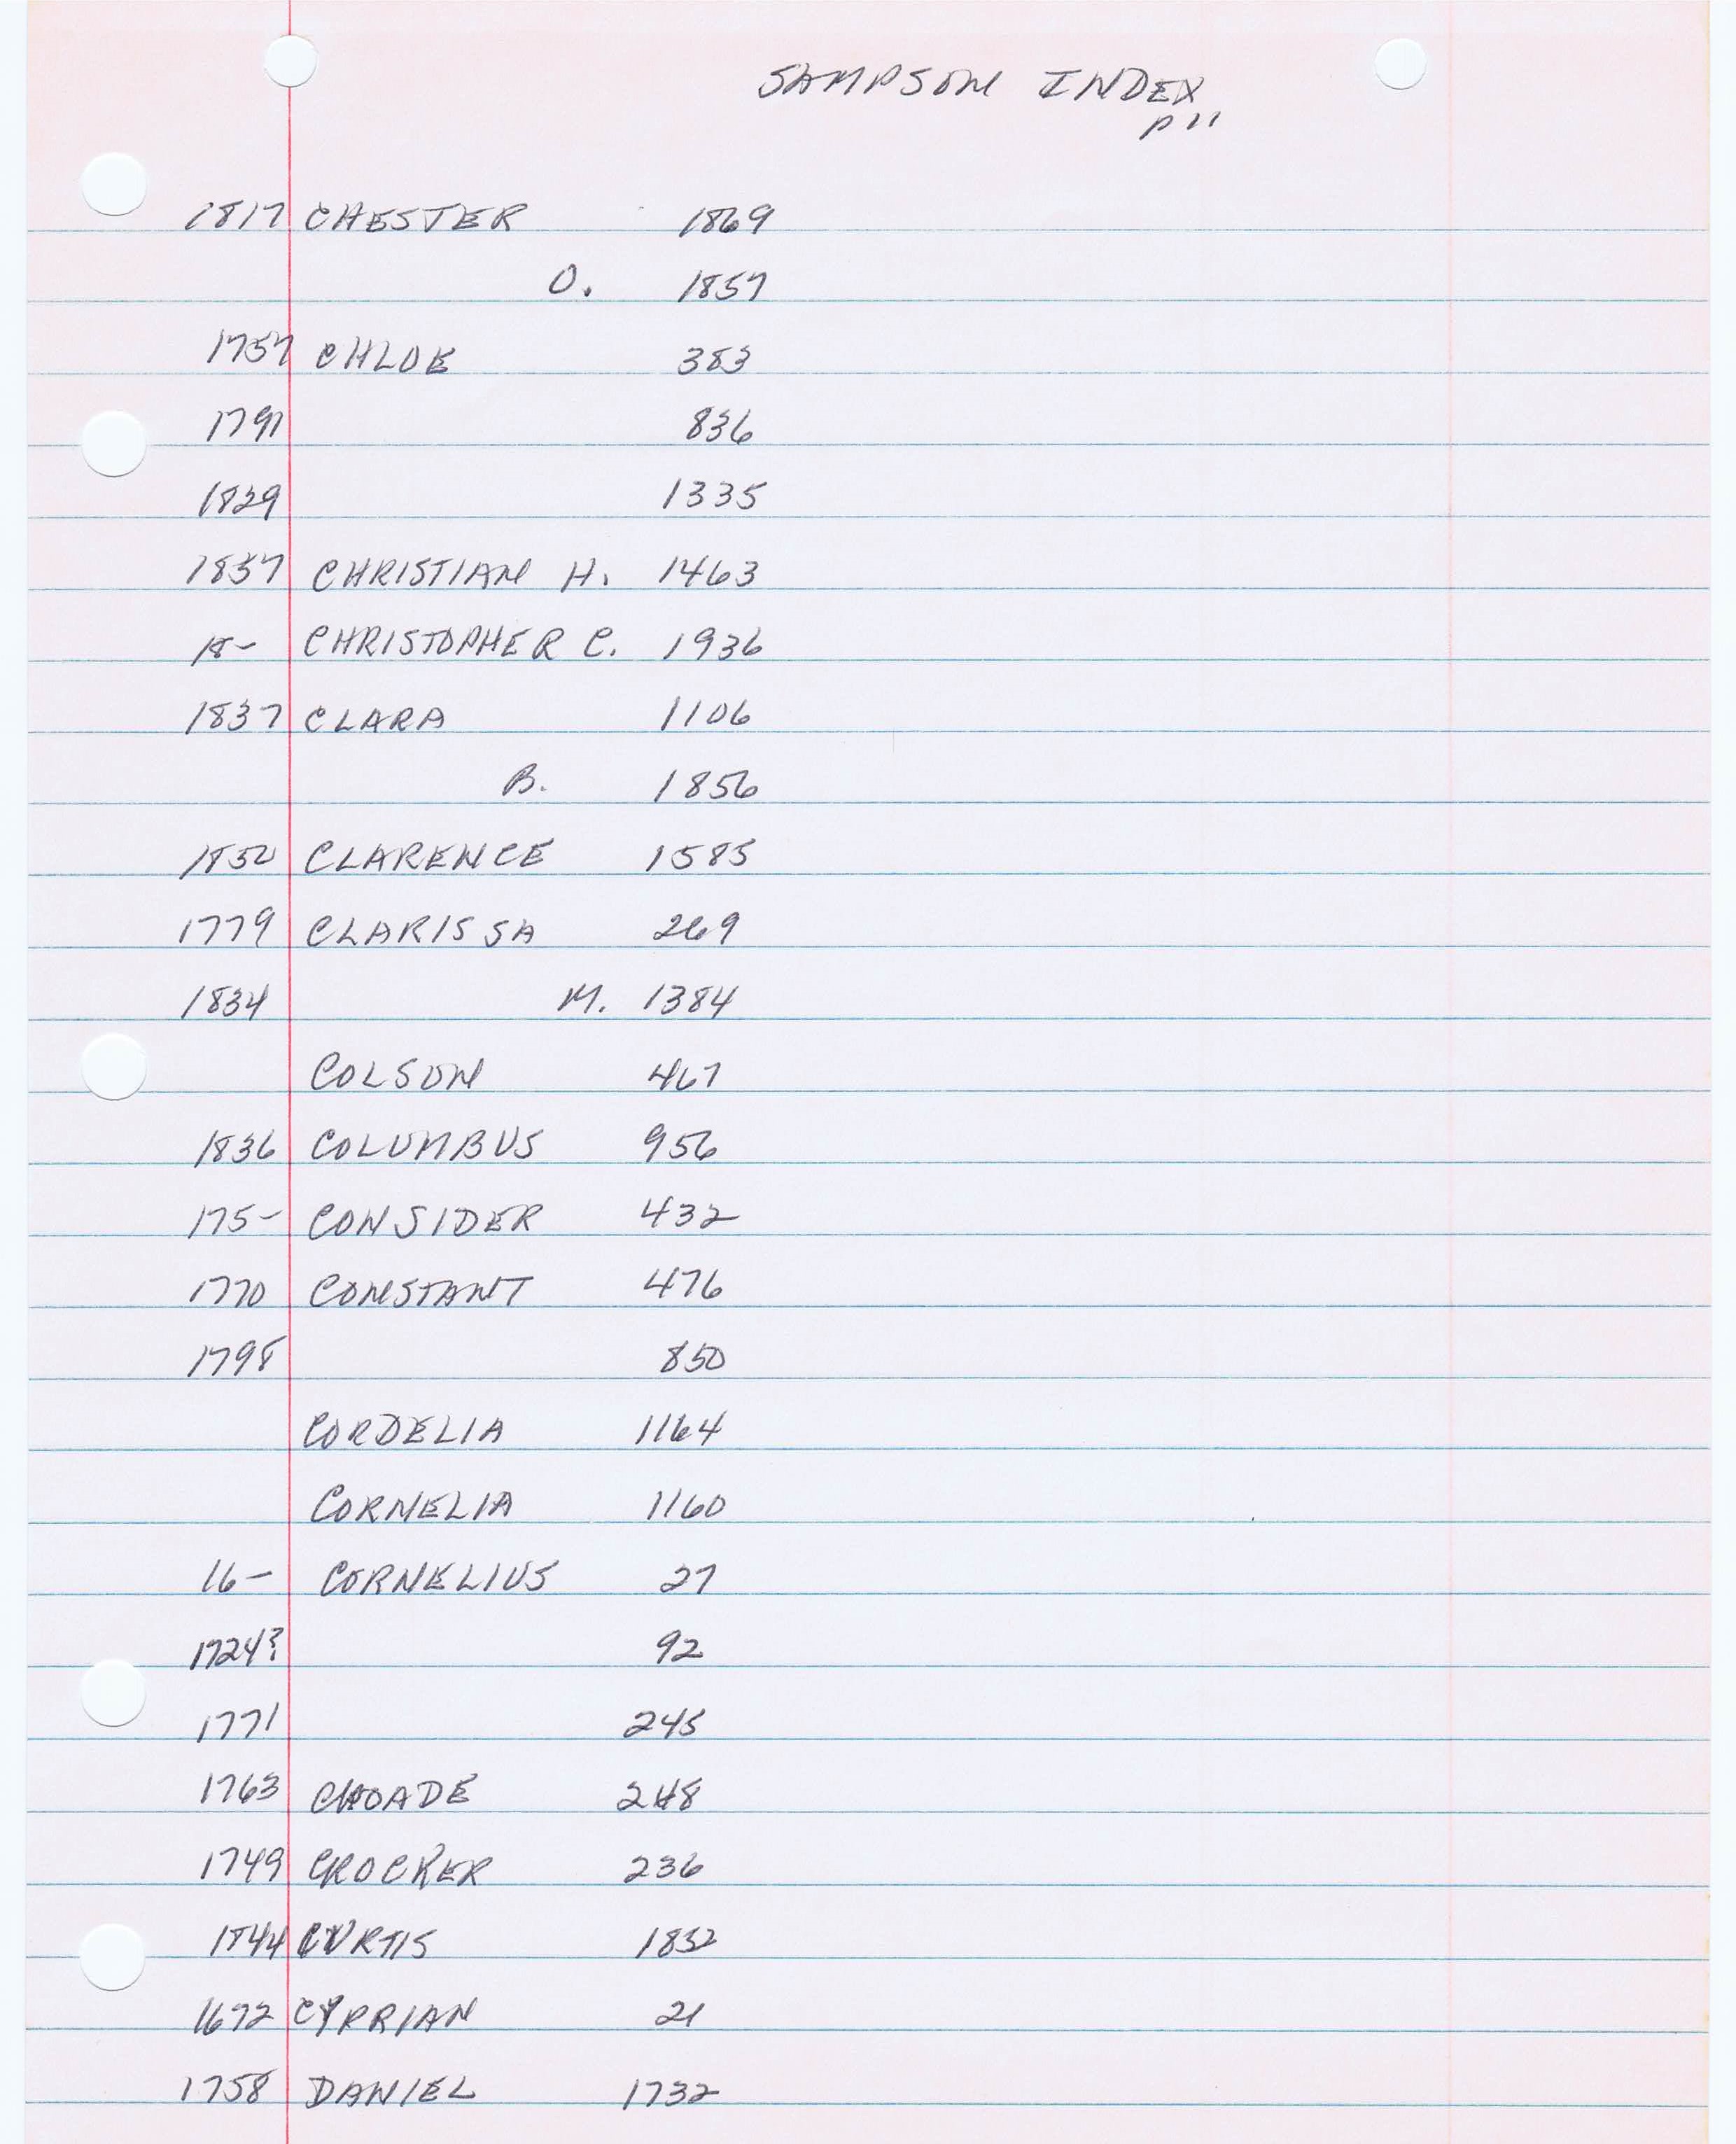 SAMPSON INDEX
p 11
1817 CHESTER 1869
O. 1857
1757 CHLOE 383
1791 836
1829 1335
1837 CHRISTIAN H. 1463
18- CHRISTOPHER C. 1936
1837 CLARA 1106
B. 1856
1852 CLARENCE 1585
1779 CLARISSA 269
1834 M. 1384
COLSON 467
1836 COLUMBUS 956
175- CONSIDER 432
1770 CONSTANT 476
1798 850
CORDELIA 1164
CORNELIA 1160
16- CORNELIUS 27
1724? 92
1771 245
1763 CHOADE 248
1749 CROCKER 236
1844 CURTIS 1832
1672 CYPRIAN 21
1758 DANIEL 1732